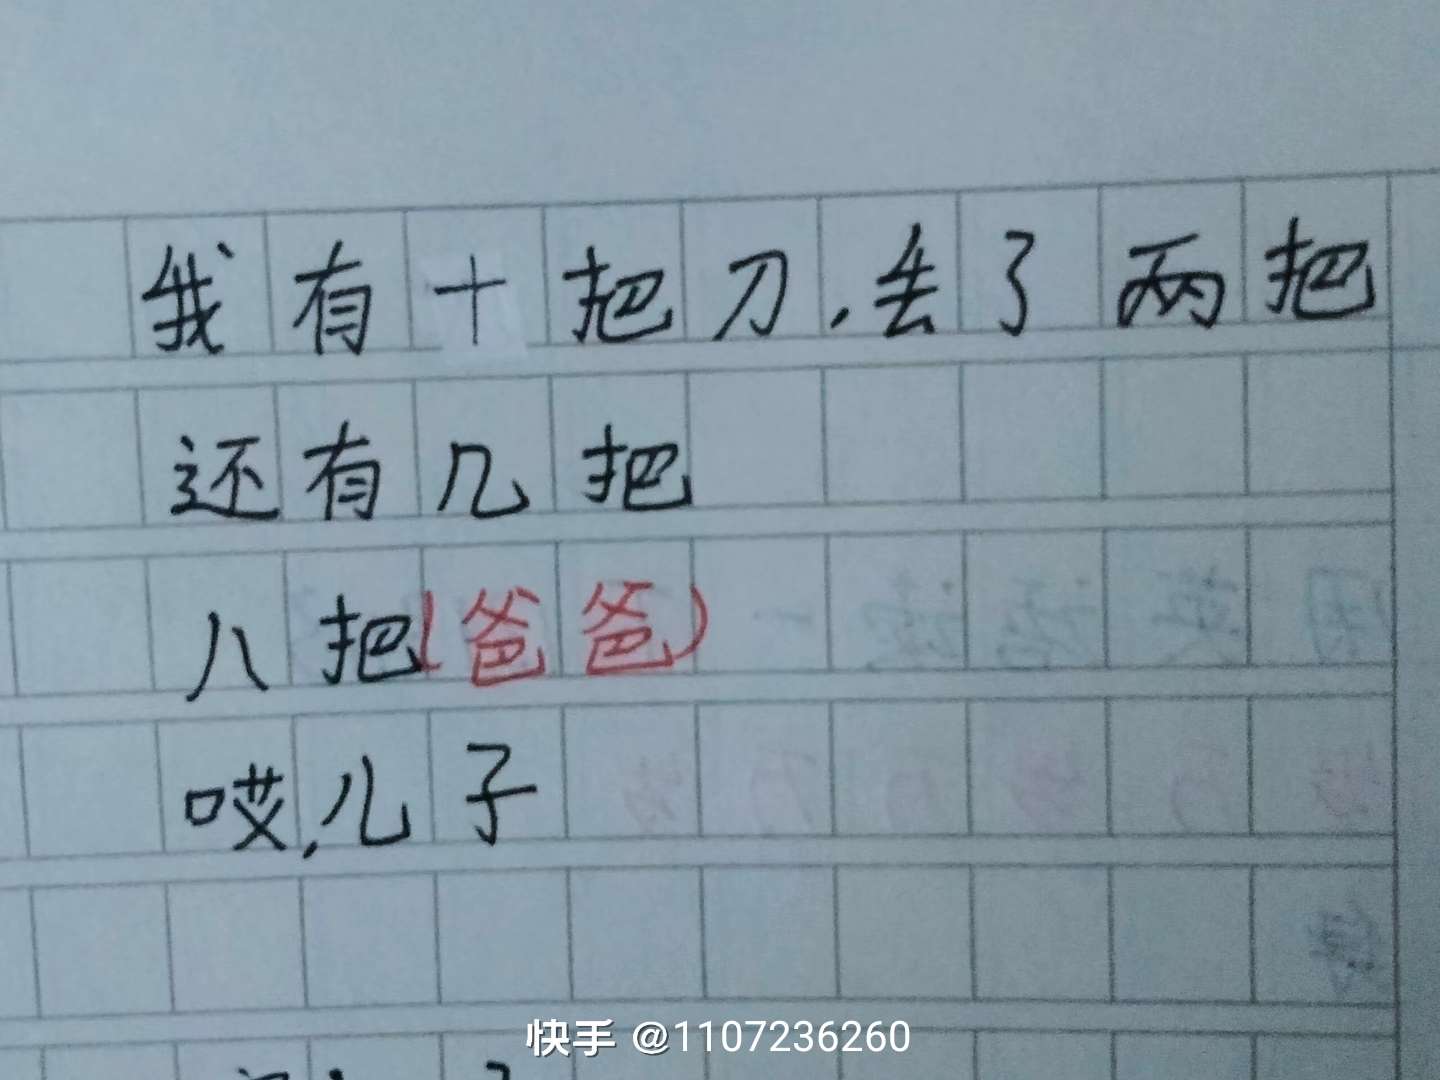 我有十把刀,丢了两把
还有几把
八把(爸爸)
哎,儿子
快手 @1107236260